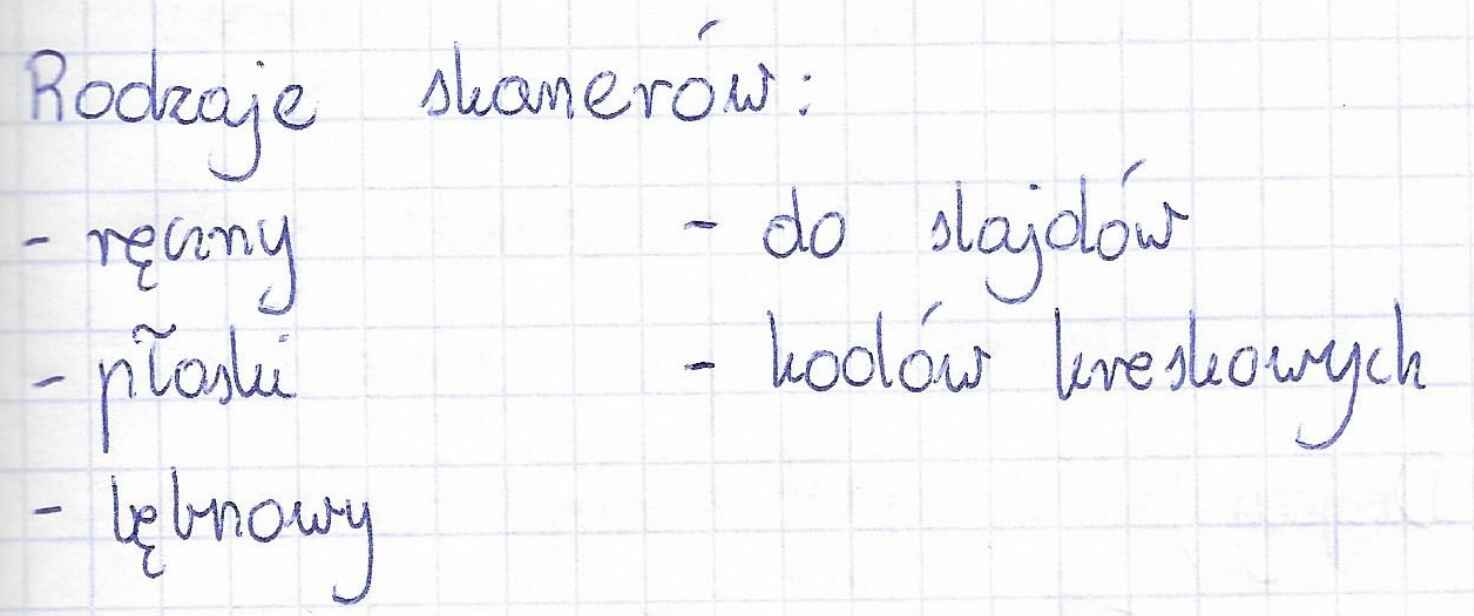 Rodzaje skanerów:
- ręczny
- płaski
- bębnowy
- do slajdów
- kodów kreskowych